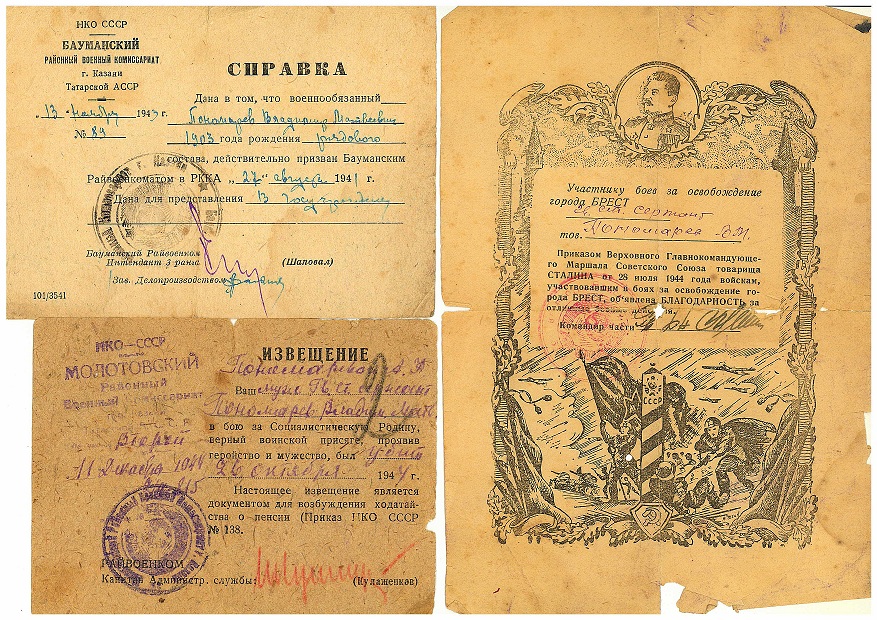 НКО СССР
БАУМАНСКИЙ
РАЙОННЫЙ ВОЕННЫЙ КОМИССАРИАТ
г. Казани
Татарской АССР
"13" ноября 1943 г.
№ 89
СПРАВКА
Дана в том, что военнообязанный
Пономарев Владимир Матвеевич
1903 года рождения рядового
состава, действительно призван Бауманским
Райвоенкоматом в РККА „27" август 1941 г.
Дана для представления В
Бауманский Райвоенком
Интендант 3 ранга (Шаповал)
Зав. Делопроизводством
101/3541
НКО—СССР
МОЛОТОВСКИЙ
Районный
Военный Комиссариат
Вторич
11 Декабря 1944
ИЗВЕЩЕНИЕ
Пономаревой
Ваш муж Гв. ст. сержант
Пономарев Владим. Матв.
в бою за Социалистическую Родину,
верный воинской присяге, проявив
геройство и мужество, был убит
26 октября 1944 г.
Настоящее извещение является
документом для возбуждения ходатай-
ства о пенсии (Приказ НКО СССР
№ 138.
РАЙВОЕНКОМ
Капитан Администр. службы: (Кулаженков)
2
Участнику боев за освобождение
города БРЕСТ
ст. сержант
тов. Пономарев В.М.
Приказом Верховного Главнокомандующе-
го Маршала Советского Союза товарища
СТАЛИНА от 28 июля 1944 года войскам,
участвовавшим в боях за освобождение го-
рода БРЕСТ, об'явлена БЛАГОДАРНОСТЬ за
отличные боевые действия.
Командир части
СССР